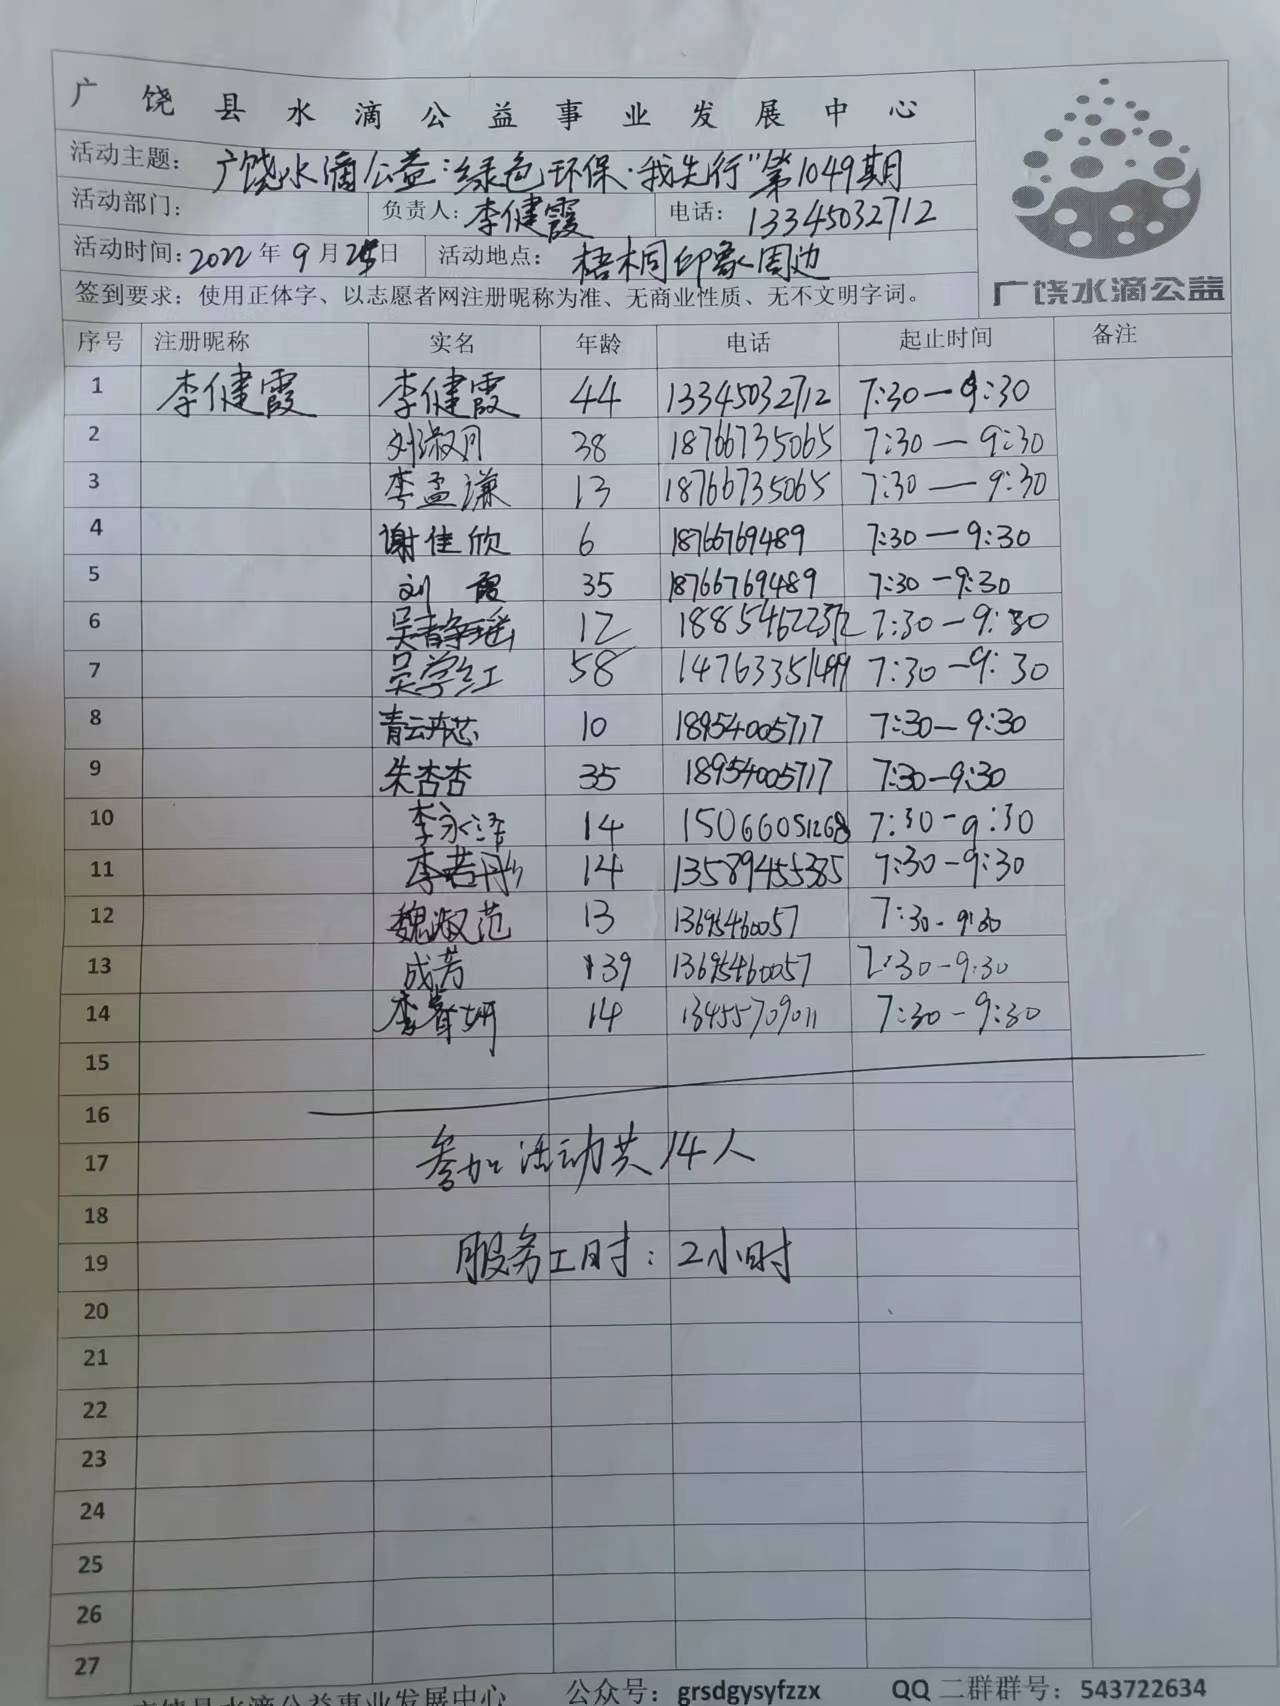 广饶县水滴公益事业发展中心
活动主题：广饶水滴公益："绿色环保·我先行"第1049期
活动部门： 负责人：李健霞 电话：13345032712
活动时间：2022年9月25日 活动地点：梧桐印象周边
签到要求：使用正体字、以志愿者网注册昵称为准、无商业性质、无不文明字词。
广饶水滴公益
序号 注册昵称 实名 年龄 电话 起止时间 备注
1 李健霞 李健霞 44 13345032712 7:30—9:30
2 刘淑月 38 18766735065 7:30—9:30
3 李孟谦 13 18766735065 7:30—9:30
4 谢佳欣 6 18766769489 7:30—9:30
5 刘霞 35 18766769489 7:30—9:30
6 吴静瑶 12 7:30—9:30
7 吴学红 58 14763351489 7:30—9:30
8 青云芯 10 18954005717 7:30—9:30
9 朱杏杏 35 18954005717 7:30—9:30
10 李永泽 14 15066051268 7:30-9:30
11 李若彤 14 13589455385 7:30-9:30
12 魏淑范 13 13695460057 7:30-9:30
13 成芳 39 13695460057 7:30-9:30
14 李睿妍 14 13455709011 7:30-9:30
15
16
17 参加活动共14人
18
19 服务工时：2小时
20
21
22
23
24
25
26
27
广饶县水滴公益事业发展中心 公众号：grsdgysyfzzx QQ二群群号：543722634